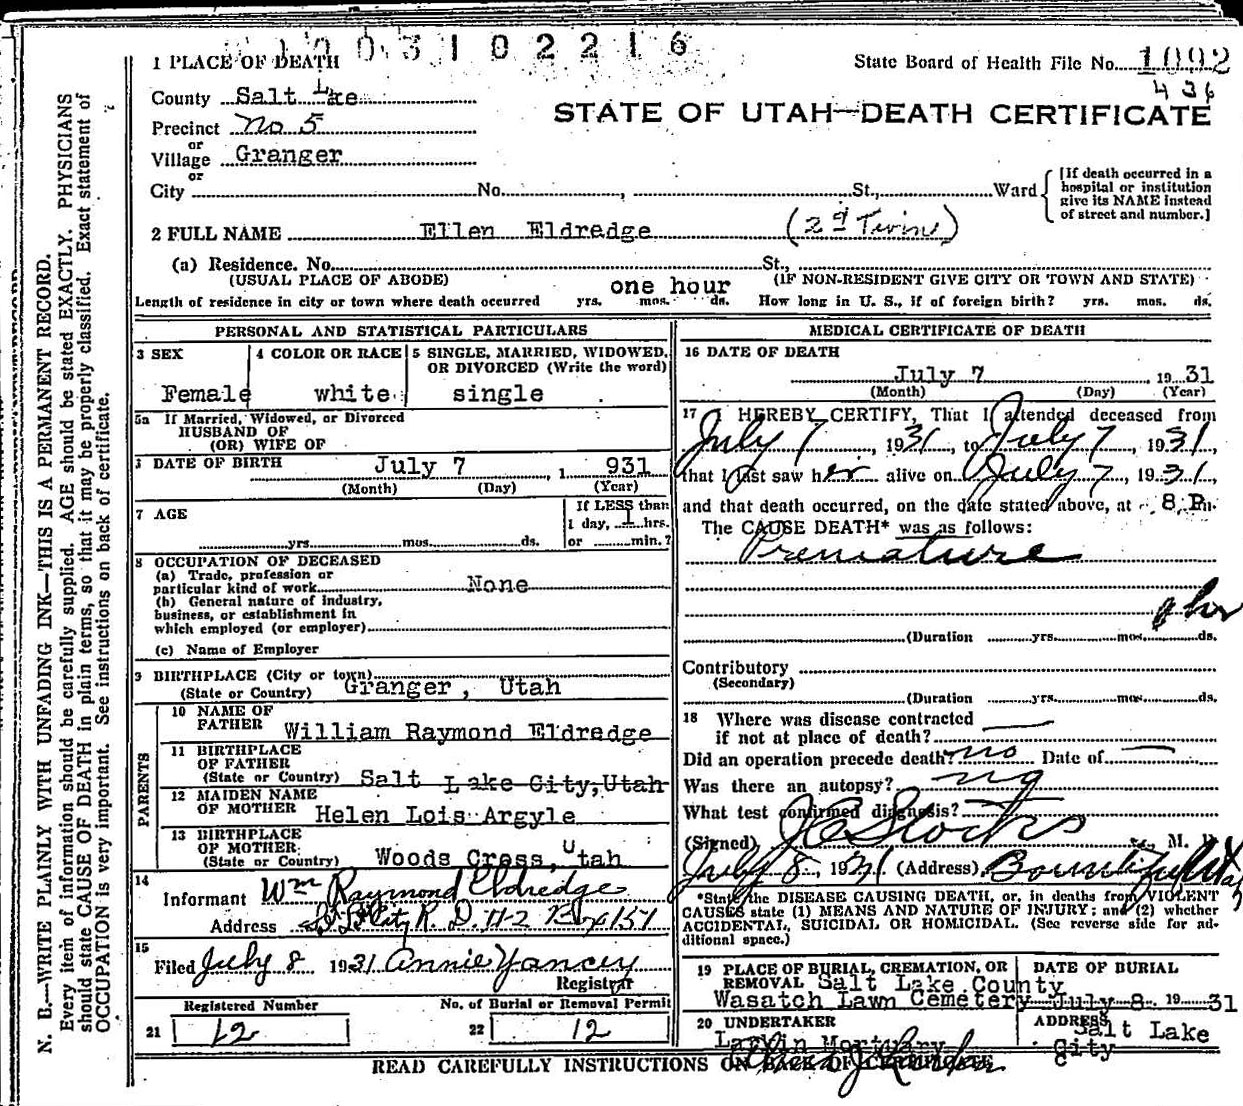 1003102216
1 PLACE OF DEATH
State Board of Health File No. 1092
436
County Salt Lake
STATE OF UTAH—DEATH CERTIFICATE
Precinct No 5
or
Village Granger
or
City No. , St., Ward
[If death occurred in a hospital or institution give its NAME instead of street and number.]
2 FULL NAME Ellen Eldredge (2nd Twin)
(a) Residence. No. St.,
(USUAL PLACE OF ABODE) (IF NON-RESIDENT GIVE CITY OR TOWN AND STATE)
one hour
Length of residence in city or town where death occurred yrs. mos. ds. How long in U. S., if of foreign birth? yrs. mos. ds.
PERSONAL AND STATISTICAL PARTICULARS
3 SEX
Female
4 COLOR OR RACE
white
5 SINGLE, MARRIED, WIDOWED, OR DIVORCED (Write the word)
single
5a If Married, Widowed, or Divorced
HUSBAND OF
(OR) WIFE OF
DATE OF BIRTH July 7, 1931
(Month) (Day) (Year)
7 AGE
yrs. mos. ds.
If LESS than
1 day, 1 hrs.
or min.?
8 OCCUPATION OF DECEASED
(a) Trade, profession or
particular kind of work None
(b) General nature of industry,
business, or establishment in
which employed (or employer)
(c) Name of Employer
9 BIRTHPLACE (City or town)
(State or Country) Granger, Utah
PARENTS
10 NAME OF
FATHER William Raymond Eldredge
11 BIRTHPLACE
OF FATHER
(State or Country) Salt Lake City, Utah
12 MAIDEN NAME
OF MOTHER Helen Lois Argyle
13 BIRTHPLACE
OF MOTHER
(State or Country) Woods Cross, Utah
14
Informant Wm Raymond Eldredge
Address S. L. City R. D. #2 Box 151
15
Filed July 8 1931 Annie Yancey
Registrar
Registered Number
21 12
No. of Burial or Removal Permit
22 12
MEDICAL CERTIFICATE OF DEATH
16 DATE OF DEATH
July 7, 1931
(Month) (Day) (Year)
17 I HEREBY CERTIFY, That I attended deceased from
July 7, 1931, to July 7, 1931,
that I last saw her alive on July 7, 1931,
and that death occurred, on the date stated above, at 8 P.m.
The CAUSE DEATH* was as follows:
Premature
hr
(Duration yrs. mos. ds.
Contributory
(Secondary)
(Duration yrs. mos. ds.
18 Where was disease contracted
if not at place of death?
Did an operation precede death? no Date of
Was there an autopsy? no
What test confirmed diagnosis?
(Signed) M. D.
July 8, 1931 (Address) Bountiful Utah
*State the DISEASE CAUSING DEATH, or, in deaths from VIOLENT
CAUSES state (1) MEANS AND NATURE OF INJURY; and (2) whether
ACCIDENTAL, SUICIDAL OR HOMICIDAL. (See reverse side for ad-
ditional space.)
19 PLACE OF BURIAL, CREMATION, OR
REMOVAL Salt Lake County
Wasatch Lawn Cemetery
DATE OF BURIAL
July 8 1931
20 UNDERTAKER
Larkin Mortuary
ADDRESS
Salt Lake
City
READ CAREFULLY INSTRUCTIONS ON BACK OF CERTIFICATE
N. B.—WRITE PLAINLY WITH UNFADING INK—THIS IS A PERMANENT RECORD.
Every item of information should be carefully supplied. AGE should be stated EXACTLY. PHYSICIANS
should state CAUSE OF DEATH in plain terms, so that it may be properly classified. Exact statement of
OCCUPATION is very important. See instructions on back of certificate.